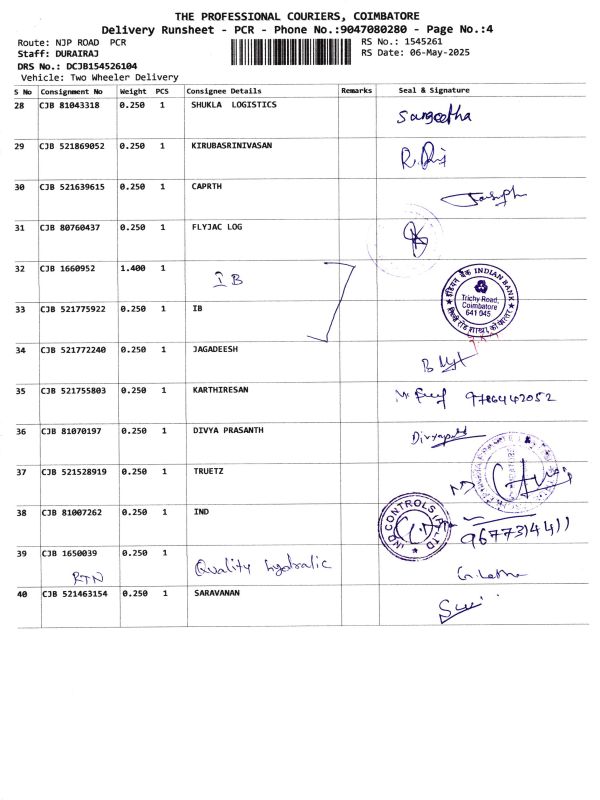 THE PROFESSIONAL COURIERS, COIMBATORE
Delivery Runsheet - PCR - Phone No.:9047080280 - Page No.:4
Route: NJP ROAD PCR RS No.: 1545261
Staff: DURAIRAJ RS Date: 06-May-2025
DRS No.: DCJB154526104
Vehicle: Two Wheeler Delivery
S No Consignment No Weight PCS Consignee Details Remarks Seal & Signature
28 CJB 81043318 0.250 1 SHUKLA LOGISTICS Sangeetha
29 CJB 521869052 0.250 1 KIRUBASRINIVASAN
30 CJB 521639615 0.250 1 CAPRTH
31 CJB 80760437 0.250 1 FLYJAC LOG
32 CJB 1660952 1.400 1 IB
इंडियन बैंक INDIAN BANK
Trichy Road,
Coimbatore
641 045
33 CJB 521775922 0.250 1 IB
34 CJB 521772240 0.250 1 JAGADEESH
35 CJB 521755803 0.250 1 KARTHIRESAN 9786442052
36 CJB 81070197 0.250 1 DIVYA PRASANTH
37 CJB 521528919 0.250 1 TRUETZ
38 CJB 81007262 0.250 1 IND IND CONTROLS (P) LTD 9677314411
39 CJB 1650039 0.250 1 Quality hydralic
RTN
40 CJB 521463154 0.250 1 SARAVANAN